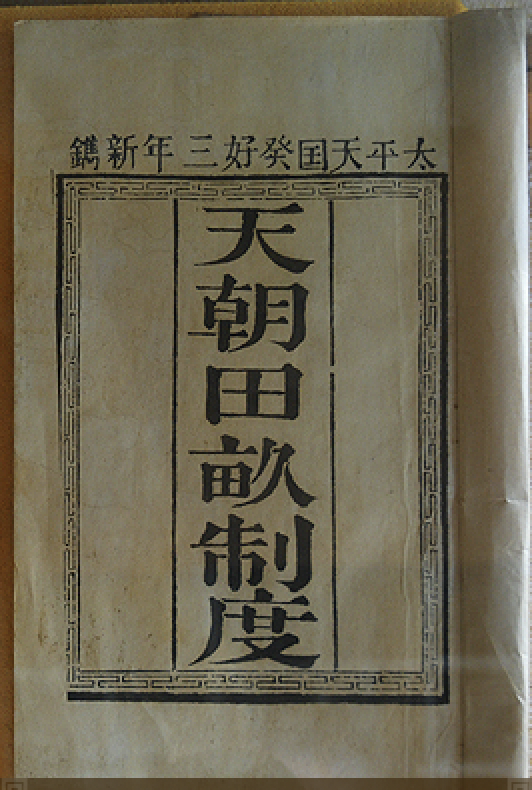 太平天囯癸好三年新鐫
天朝田畝制度